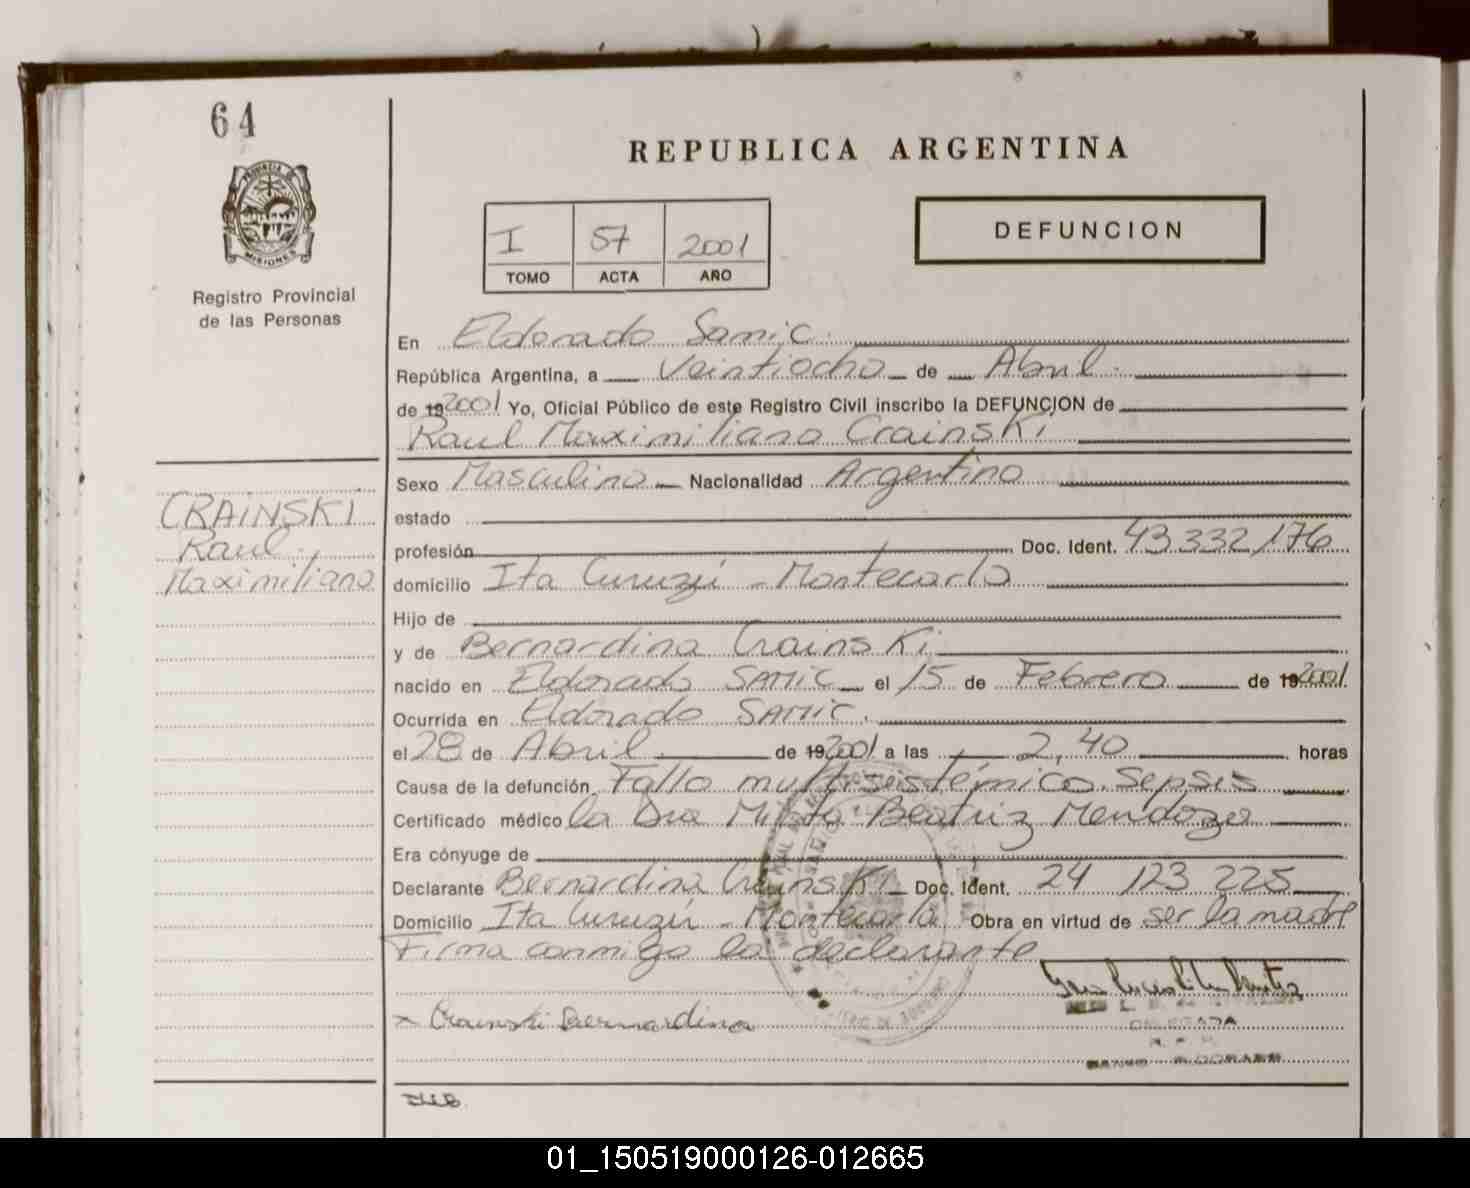 64
PROVINCIA DE
MISIONES
Registro Provincial
de las Personas
REPUBLICA ARGENTINA
I 57 2001
TOMO ACTA AÑO
DEFUNCION
En Eldorado Samic.
República Argentina, a Veintiocho de Abril.
de 192001 Yo, Oficial Público de este Registro Civil inscribo la DEFUNCION de
Raul Maximiliano Crainski
CRAINSKI
Raul
Maximiliano
Sexo Masculino Nacionalidad Argentino
estado
profesión Doc. Ident. 43.332.176
domicilio Ita Curuzú - Montecarlo
Hijo de
y de Bernardina Crainski
nacido en Eldorado SAMIC el 15 de Febrero de 192001
Ocurrida en Eldorado SAMIC.
el 28 de Abril de 192001 a las 2,40 horas
Causa de la defunción Fallo multisistémico. Sepsis
Certificado médico la Dra Mirta Beatriz Mendoza
Era cónyuge de
Declarante Bernardina Crainski Doc. Ident. 24 123 225
Domicilio Ita Curuzú - Montecarlo Obra en virtud de ser la madre
Firma conmigo la declarante
x Crainski Bernardina
DELEGADA
01_150519000126-012665